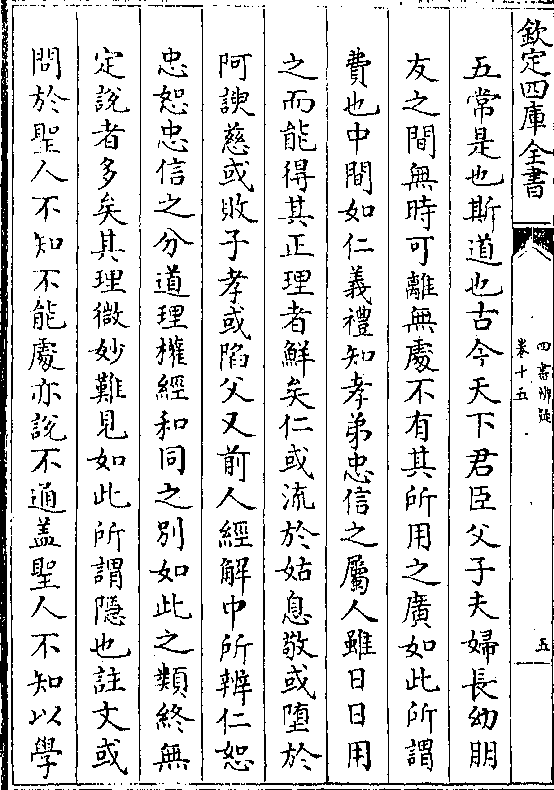 欽定四庫全書
四書辨疑
卷十五
五
五常是也斯道也古今天下君臣父子夫婦長幼朋
友之間無時可離無處不有其所用之廣如此所謂
費也中間如仁義禮知孝弟忠信之屬人雖日日用
之而能得其正理者鮮矣仁或流於姑息敬或墮於
阿諛慈或敗子孝或陷父又前人經解中所辨仁恕
忠恕忠信之分道理權經和同之別如此之類終無
定說者多矣其理微妙難見如此所謂隱也註文或
問於聖人不知不能處亦說不通盖聖人不知以學